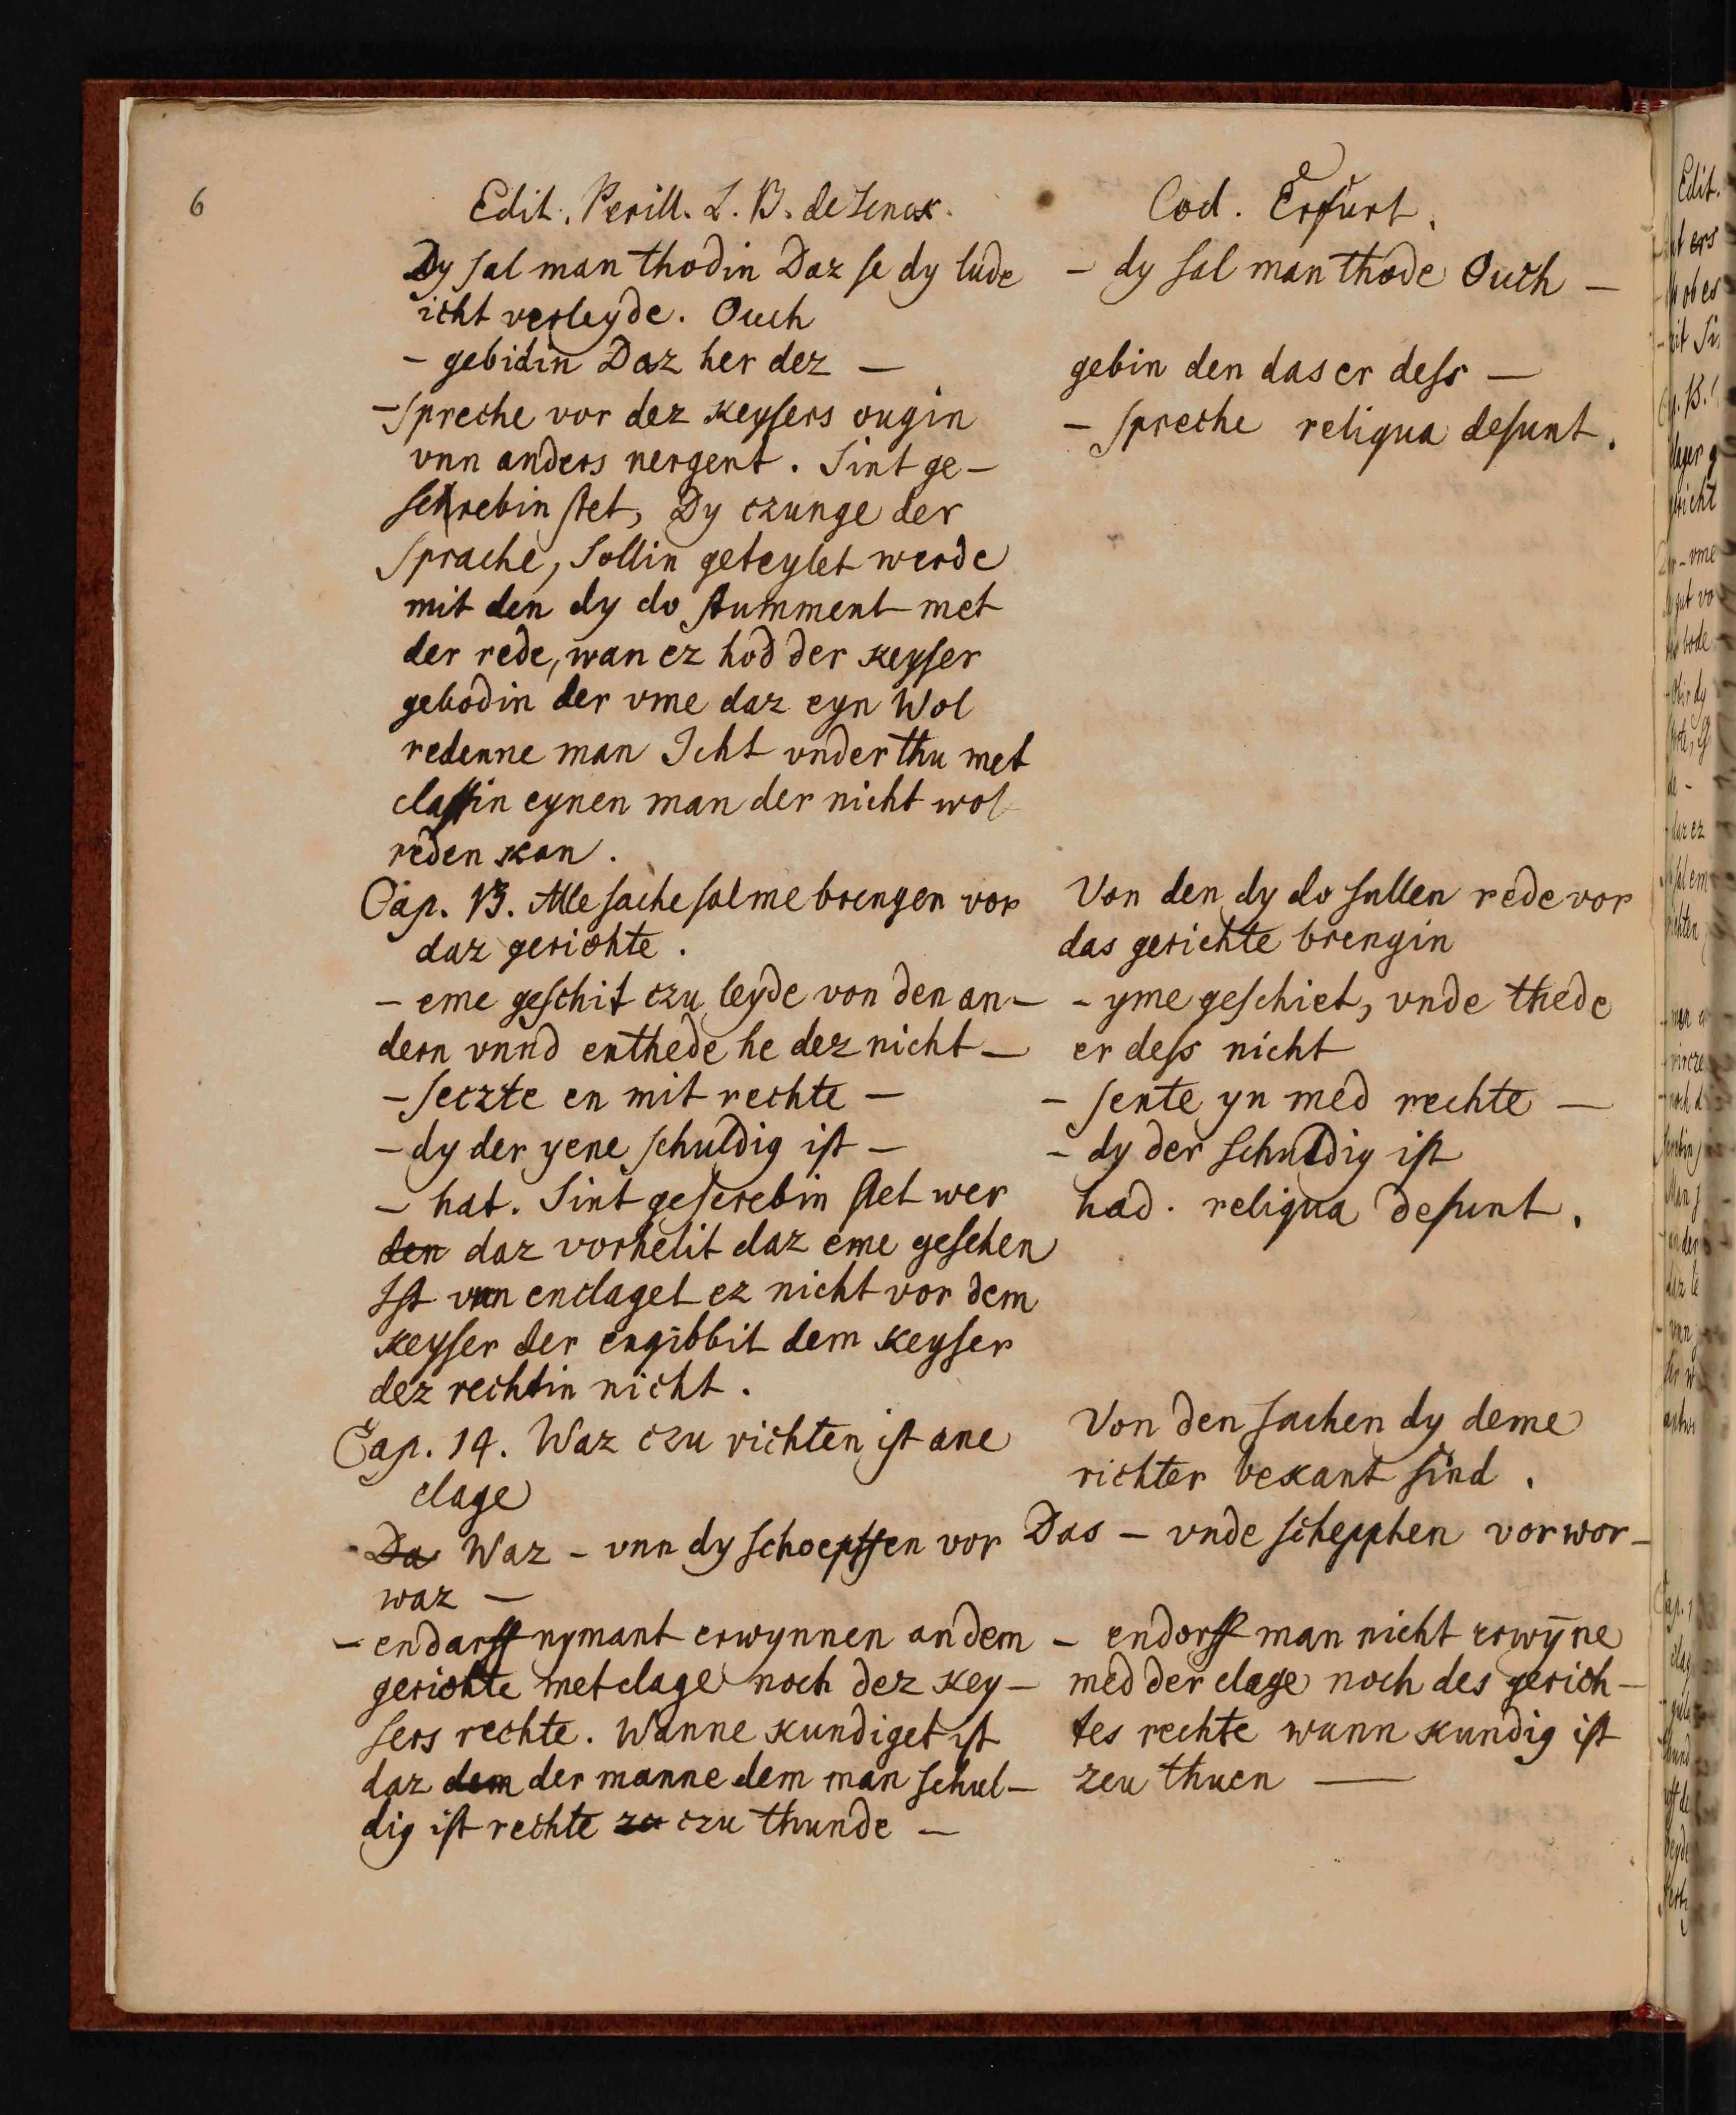 6
Edit. Perill. L. B. de Senck.
Dy sal man thodin Daz se dy lude
icht verleyde. Ouch
– gebidin Daz her dez –
– spreche vor dez keysers ougin
vnn anders nergent. Sint ge–
schrebin stet, Dy czunge der
sprache, sollin geteylet werde
mit den dy do stumment met
der rede, wan ez hod der keyser
gebodin der vme daz eyn Wol
redenne man Icht vnder thu met
claffin eynen man der nicht wol
reden kan.
Cap. 13. Alle sache sal me brengen vor
daz gerichte.
– eme geschit czu leyde von den an–
dern vnnd enthede he dez nicht –
– seczte en mit rechte –
– dy der yene schuldig ist –
– hat. Sint gescrebin stet wer
den daz vorhelit daz eme geschen
Ist vnn enclaget ez nicht vor dem
keyser der engibbit dem keyser
dez rechtin nicht.
Cap. 14. Waz czu richten ist ane
clage
Da Waz – vnn dy schoepffen vor
waz –
– endarff nymant erwynnen an dem
gerichte met clage noch dez key–
sers rechte. Wanne kundiget ist
daz dem der manne dem man schul–
dig ist rechte zu czu thunde –
Cod. Erfurt.
– dy sal man thode Ouch –
gebin den das er dess –
– spreche reliqua desunt.
Von den dy do sullen rede vor
das gerichte brengin
– yme geschiet, vnde thede
er dess nicht
– sente yn med rechte –
– dy der schuldig ist
had. reliqua desunt.
Von den sachen dy deme
richter bekant sind.
Das – vnde schepphen vorwor–
– endorff man nicht erwȳne
med der clage noch des gerich–
tes rechte wann kundig ist
zcu thuen –